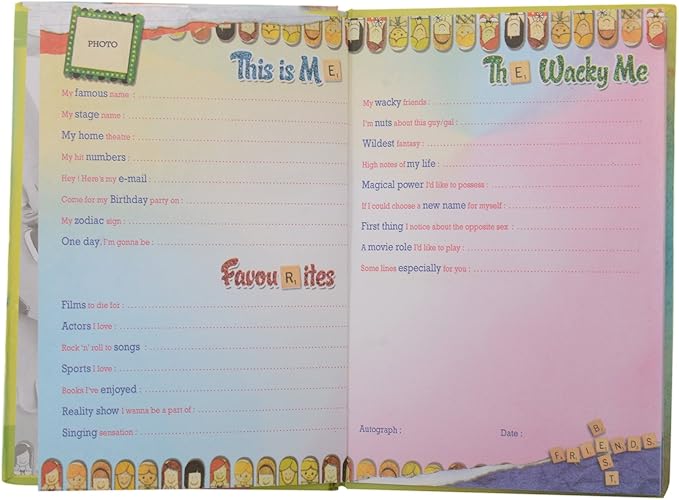 PHOTO
This is ME
My famous name :
My stage name :
My home theatre :
My hit numbers :
Hey ! Here's my e-mail :
Come for my Birthday party on :
My zodiac sign :
One day, I'm gonna be :
Favourites
Films to die for :
Actors I love :
Rock 'n' roll to songs :
Sports I love :
Books I've enjoyed :
Reality show I wanna be a part of :
Singing sensation :
ThE Wacky Me
My wacky friends :
I'm nuts about this guy/gal :
Wildest fantasy :
High notes of my life :
Magical power I'd like to possess :
If I could choose a new name for myself :
First thing I notice about the opposite sex :
A movie role I'd like to play :
Some lines especially for you :
Autograph :
Date :
BEST
FRIENDS